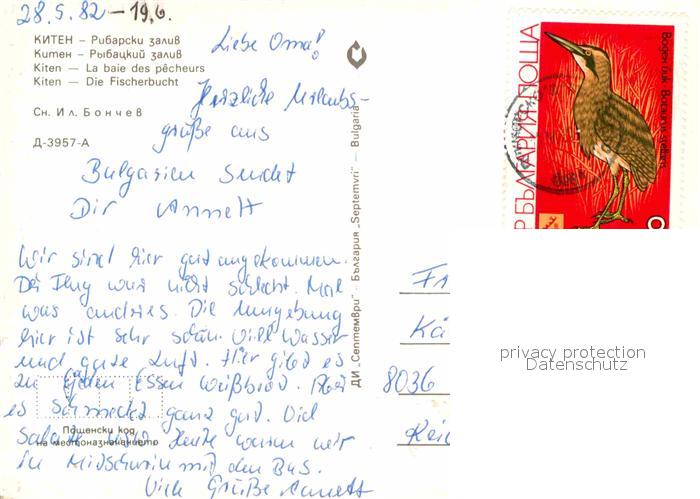 28.5.82 – 19.6.
КИТЕН – Рибарски залив
Китен – Рыбацкий залив
Kiten – La baie des pêcheurs
Kiten – Die Fischerbucht
Сн. Ил. Бончев
Д-3957-А
Liebe Oma!
Herzliche Urlaubs-
grüße aus
Bulgarien sendet
Dir Annett
Wir sind hier gut angekommen.
Der Flug war nicht schlecht. Mal
was andres. Die Umgebung
hier ist sehr schön. Viel Wasser
und gute Luft. Hier gibt es
zu jeden Essen Weißbrot. Aber
es schmeckt ganz gut. Viel
Salate und heute waren wir
in Midschurin mit den Bus.
Viele Grüße Annett
Пощенски код
на местоназначението
ДИ „Септември“ – България „Septemvri“ – Bulgaria
БЪЛГАРИЯ·ПОЩА
Воден бик Botaurus stellaris
8036
privacy protection
Datenschutz